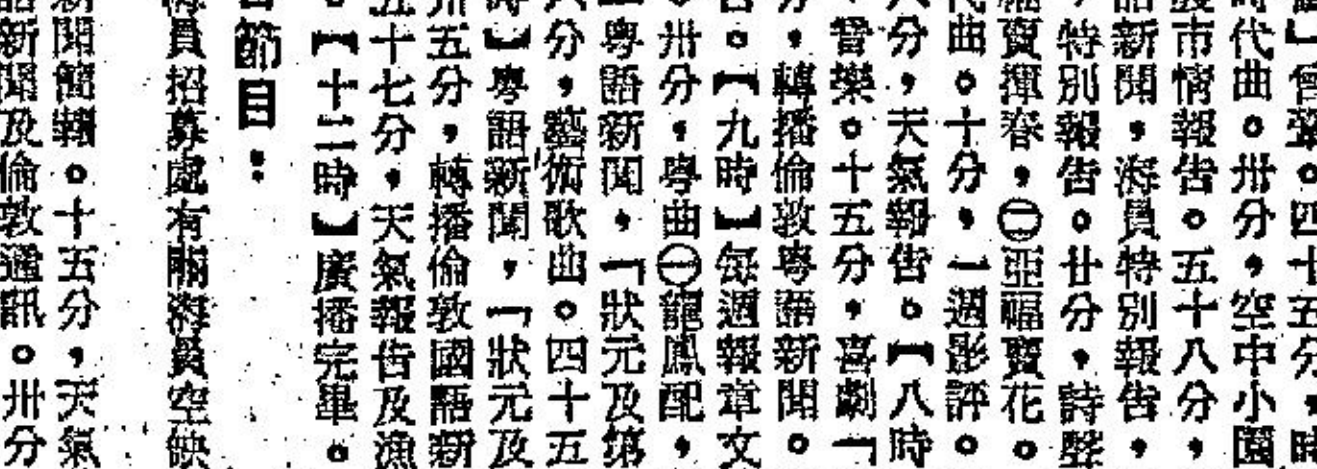 」曾鞏。四十五分，時
時代曲。卅分，空中小園
股市情報告。五十八分，
語新聞，海員特別報告，
，特別報告。廿分，詩聲
寶揮春，㊁亞福賣花。
代曲。十分，一週影評。
八分，天氣報告。【八時
音樂。十五分，喜劇「
分，轉播倫敦粵語新聞。
告。【九時】每週報章文
。卅分，粵曲㊀龍鳳配，
粵語新聞，「狀元及第
六分，藝術歌曲。四十五
時】粵語新聞，「狀元及
卅五分，轉播倫敦國語新
五十七分，天氣報告及漁
。【十二時】廣播完畢。
目節目：
海員招募處有關海員空缺
新聞簡報。十五分，天氣
語新聞及倫敦通訊。卅分